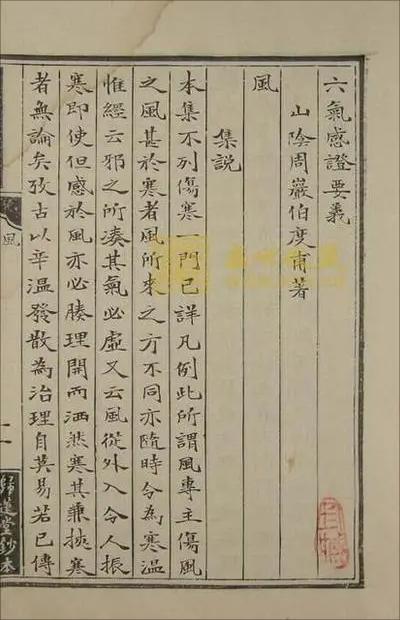 六氣感證要義
山陰周巖伯度甫著
風
集説
本集不列傷寒一門已詳凡例此所謂風專主傷風
之風甚於寒者風所來之方不同亦隨時令為寒温
惟經云邪之所湊其氣必虛又云風從外入令人振
寒即使但感於風亦必腠理開而洒然寒其兼挾寒
者無論矣攷古以辛温發散為治理自莫易若已傳
風
一
鈔本